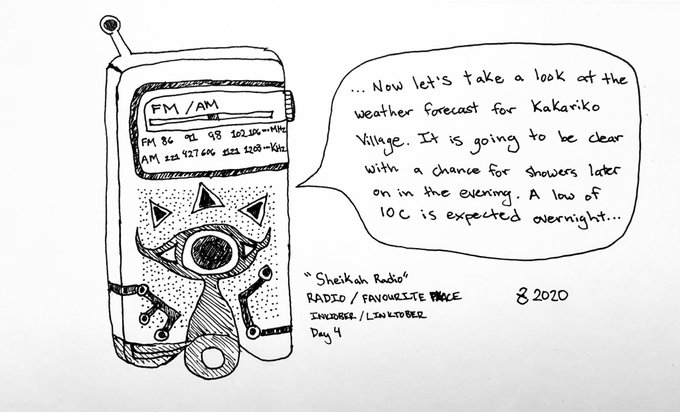 FM / AM
FM 86 91 98 102 106 MHz
AM 221 427 606 1121 1208 KHz
... Now let's take a look at the
weather forecast for Kakariko
Village. It is going to be clear
with a chance for showers later
on in the evening. A low of
10 c is expected overnight...
"Sheikah Radio"
RADIO / FAVOURITE PLACE
INKTOBER / LINKTOBER
Day 4
2020